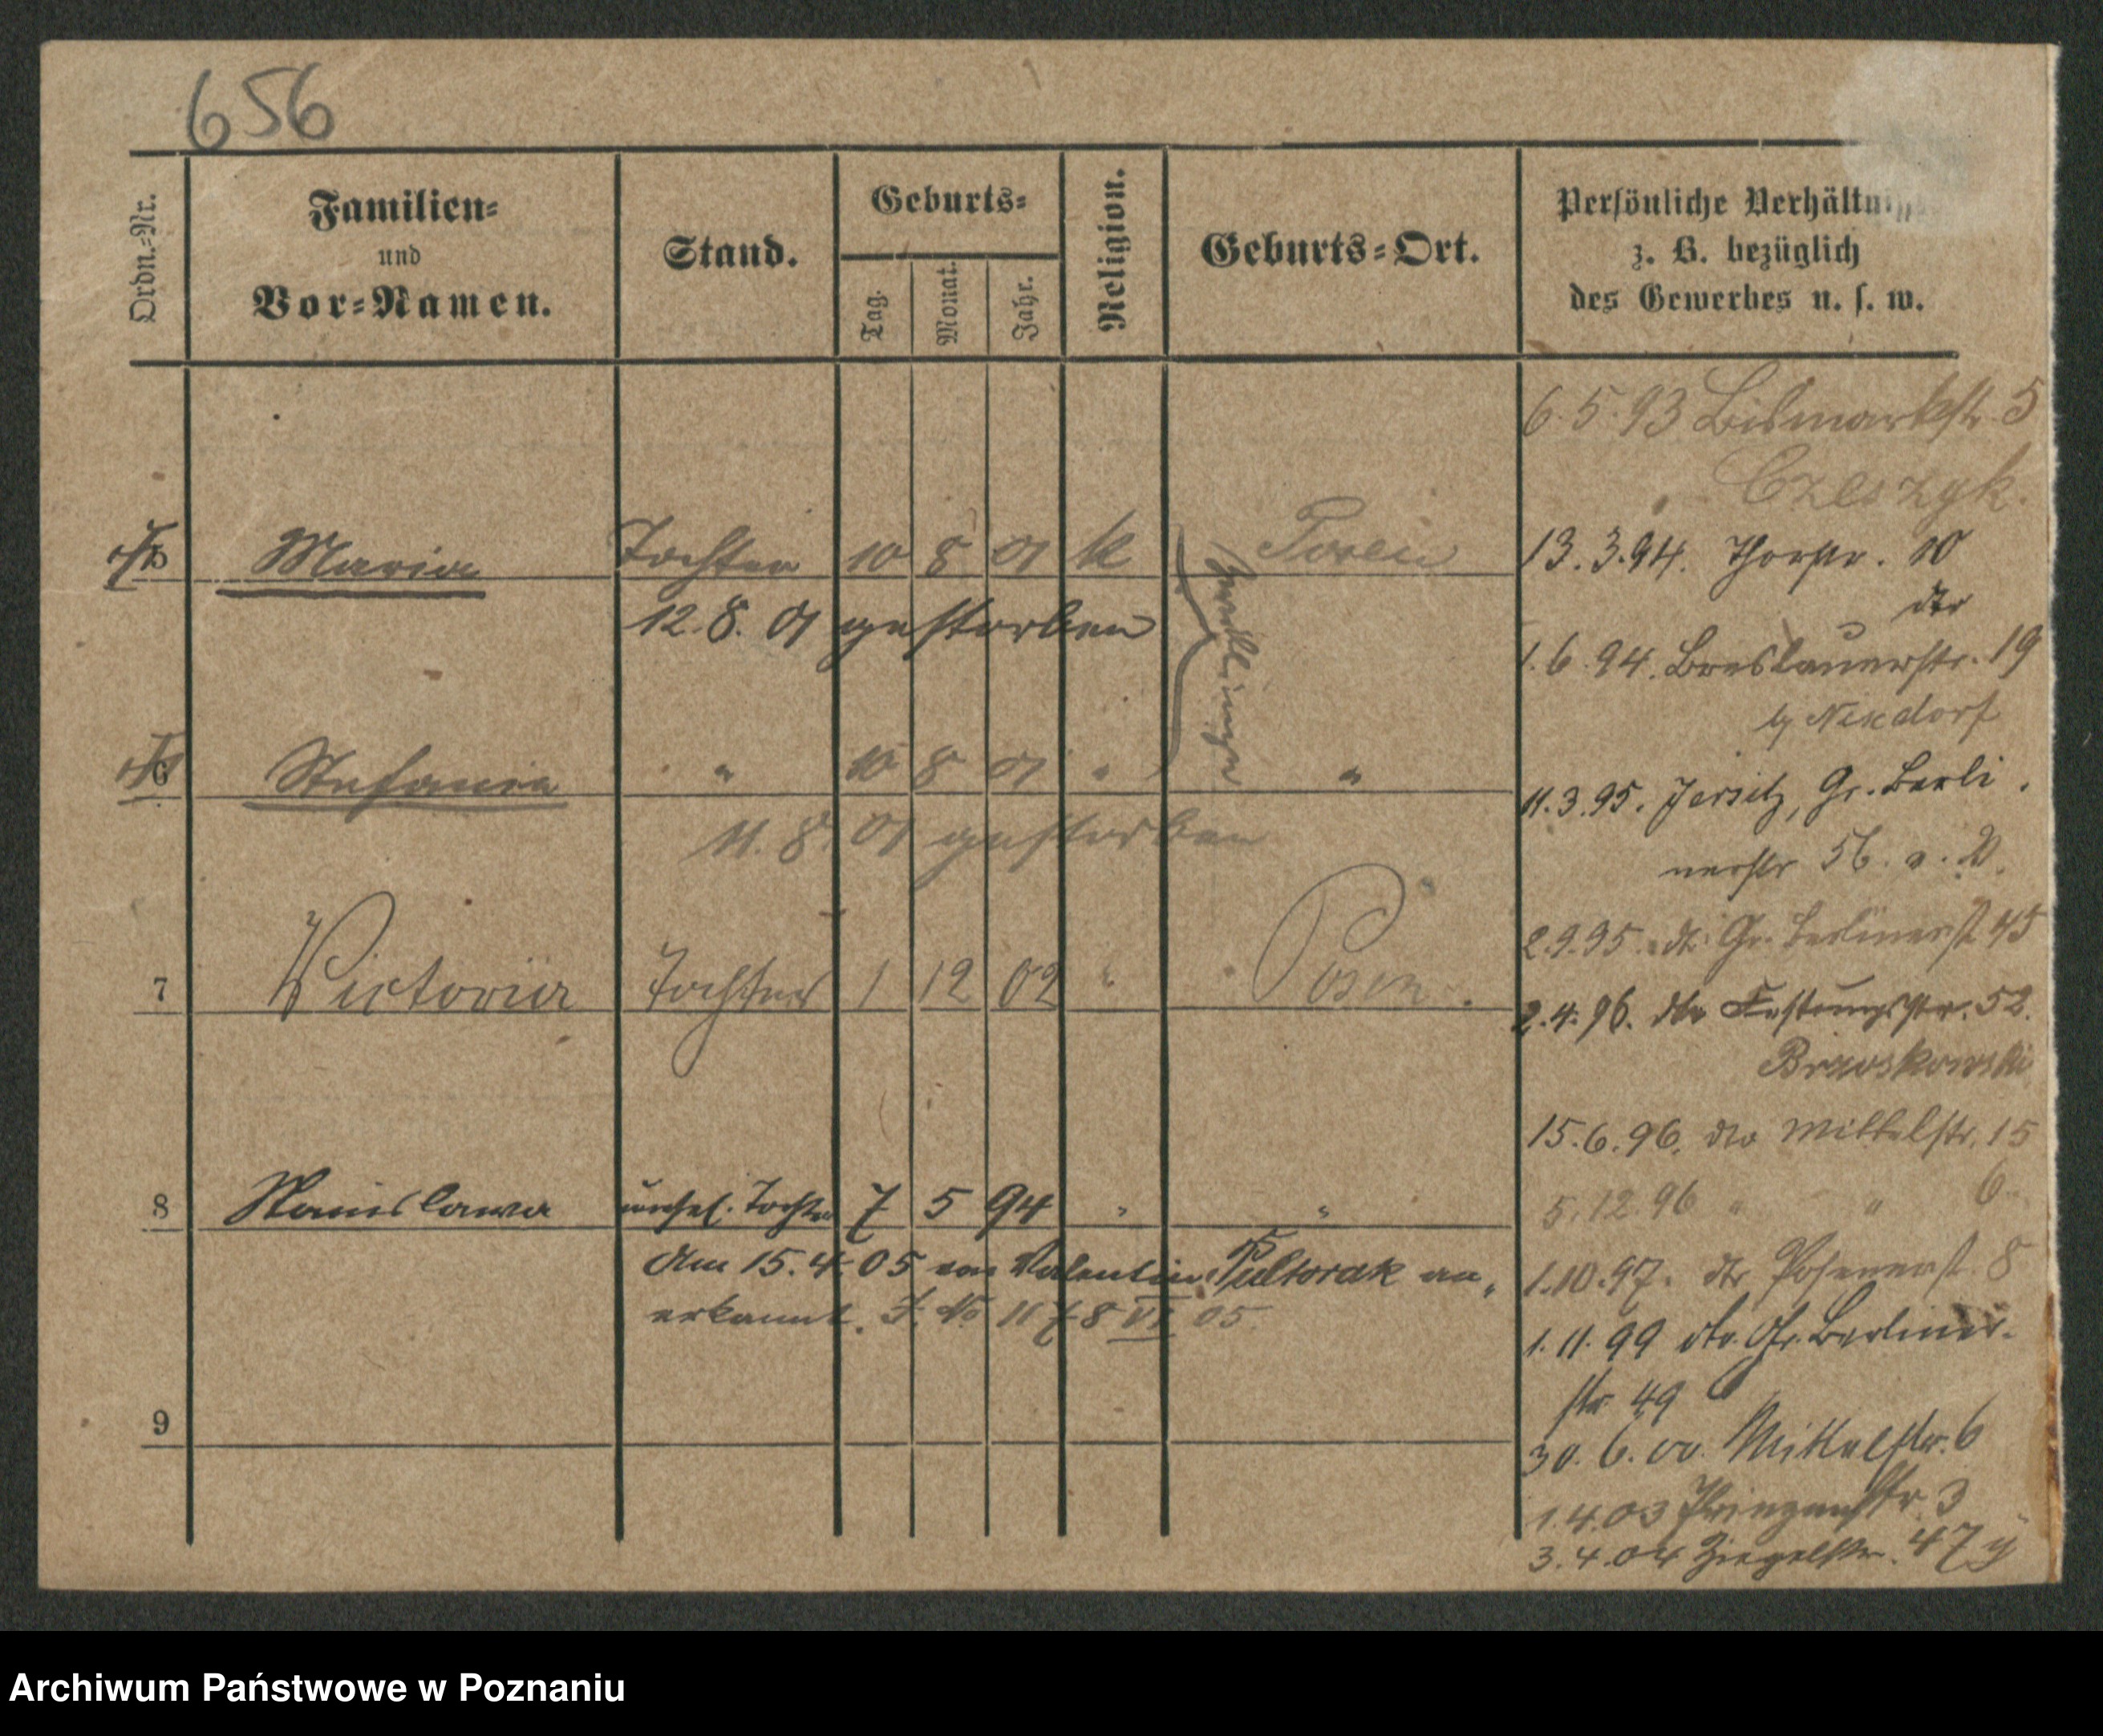 656
Ordn.-Nr.
Familien-
und
Vor-Namen.
Stand.
Geburts-
Tag.
Monat.
Jahr.
Religion.
Geburts-Ort.
Persönliche Verhältniss
z. B. bezüglich
des Gewerbes u. s. w.
5 Maria Tochter 10 8 01 k Posen
12. 8. 01 gestorben
Zwillinge
6 Stefania " 10 8 01 " "
11. 8. 01 gestorben
7 Victoria Tochter 1 12 02 " Posen.
8 Stanislawa unehel. Tochter 7 5 94 " "
Am 15. 4. 05 von Valentin Pultorak an-
erkannt. J. No 1178 VI 05.
9
6. 5. 93 Bismarkstr. 5
Czeszyk.
13. 3. 94. Thorstr. 10
dto
1. 6. 94. Breslauerstr. 19
b/ Nixdorf
11. 3. 95. Jersitz, Gr. Berli
nerstr 56. a. D.
2. 9. 95. dto Gr. Berlinerst 45
2. 4. 96. dto Festungsstr. 52.
15. 6. 96. dto Mittelstr. 15
5. 12. 96 " " 6.
1. 10. 97. dto Posenerst. 8
1. 11. 99 dto. Gr. Berliner-
str 49
30. 6. 00. Mittelstr. 6
1. 4. 03 Prinzenstr. 3
3. 4. 04 Ziegelstr. 47
Archiwum Państwowe w Poznaniu